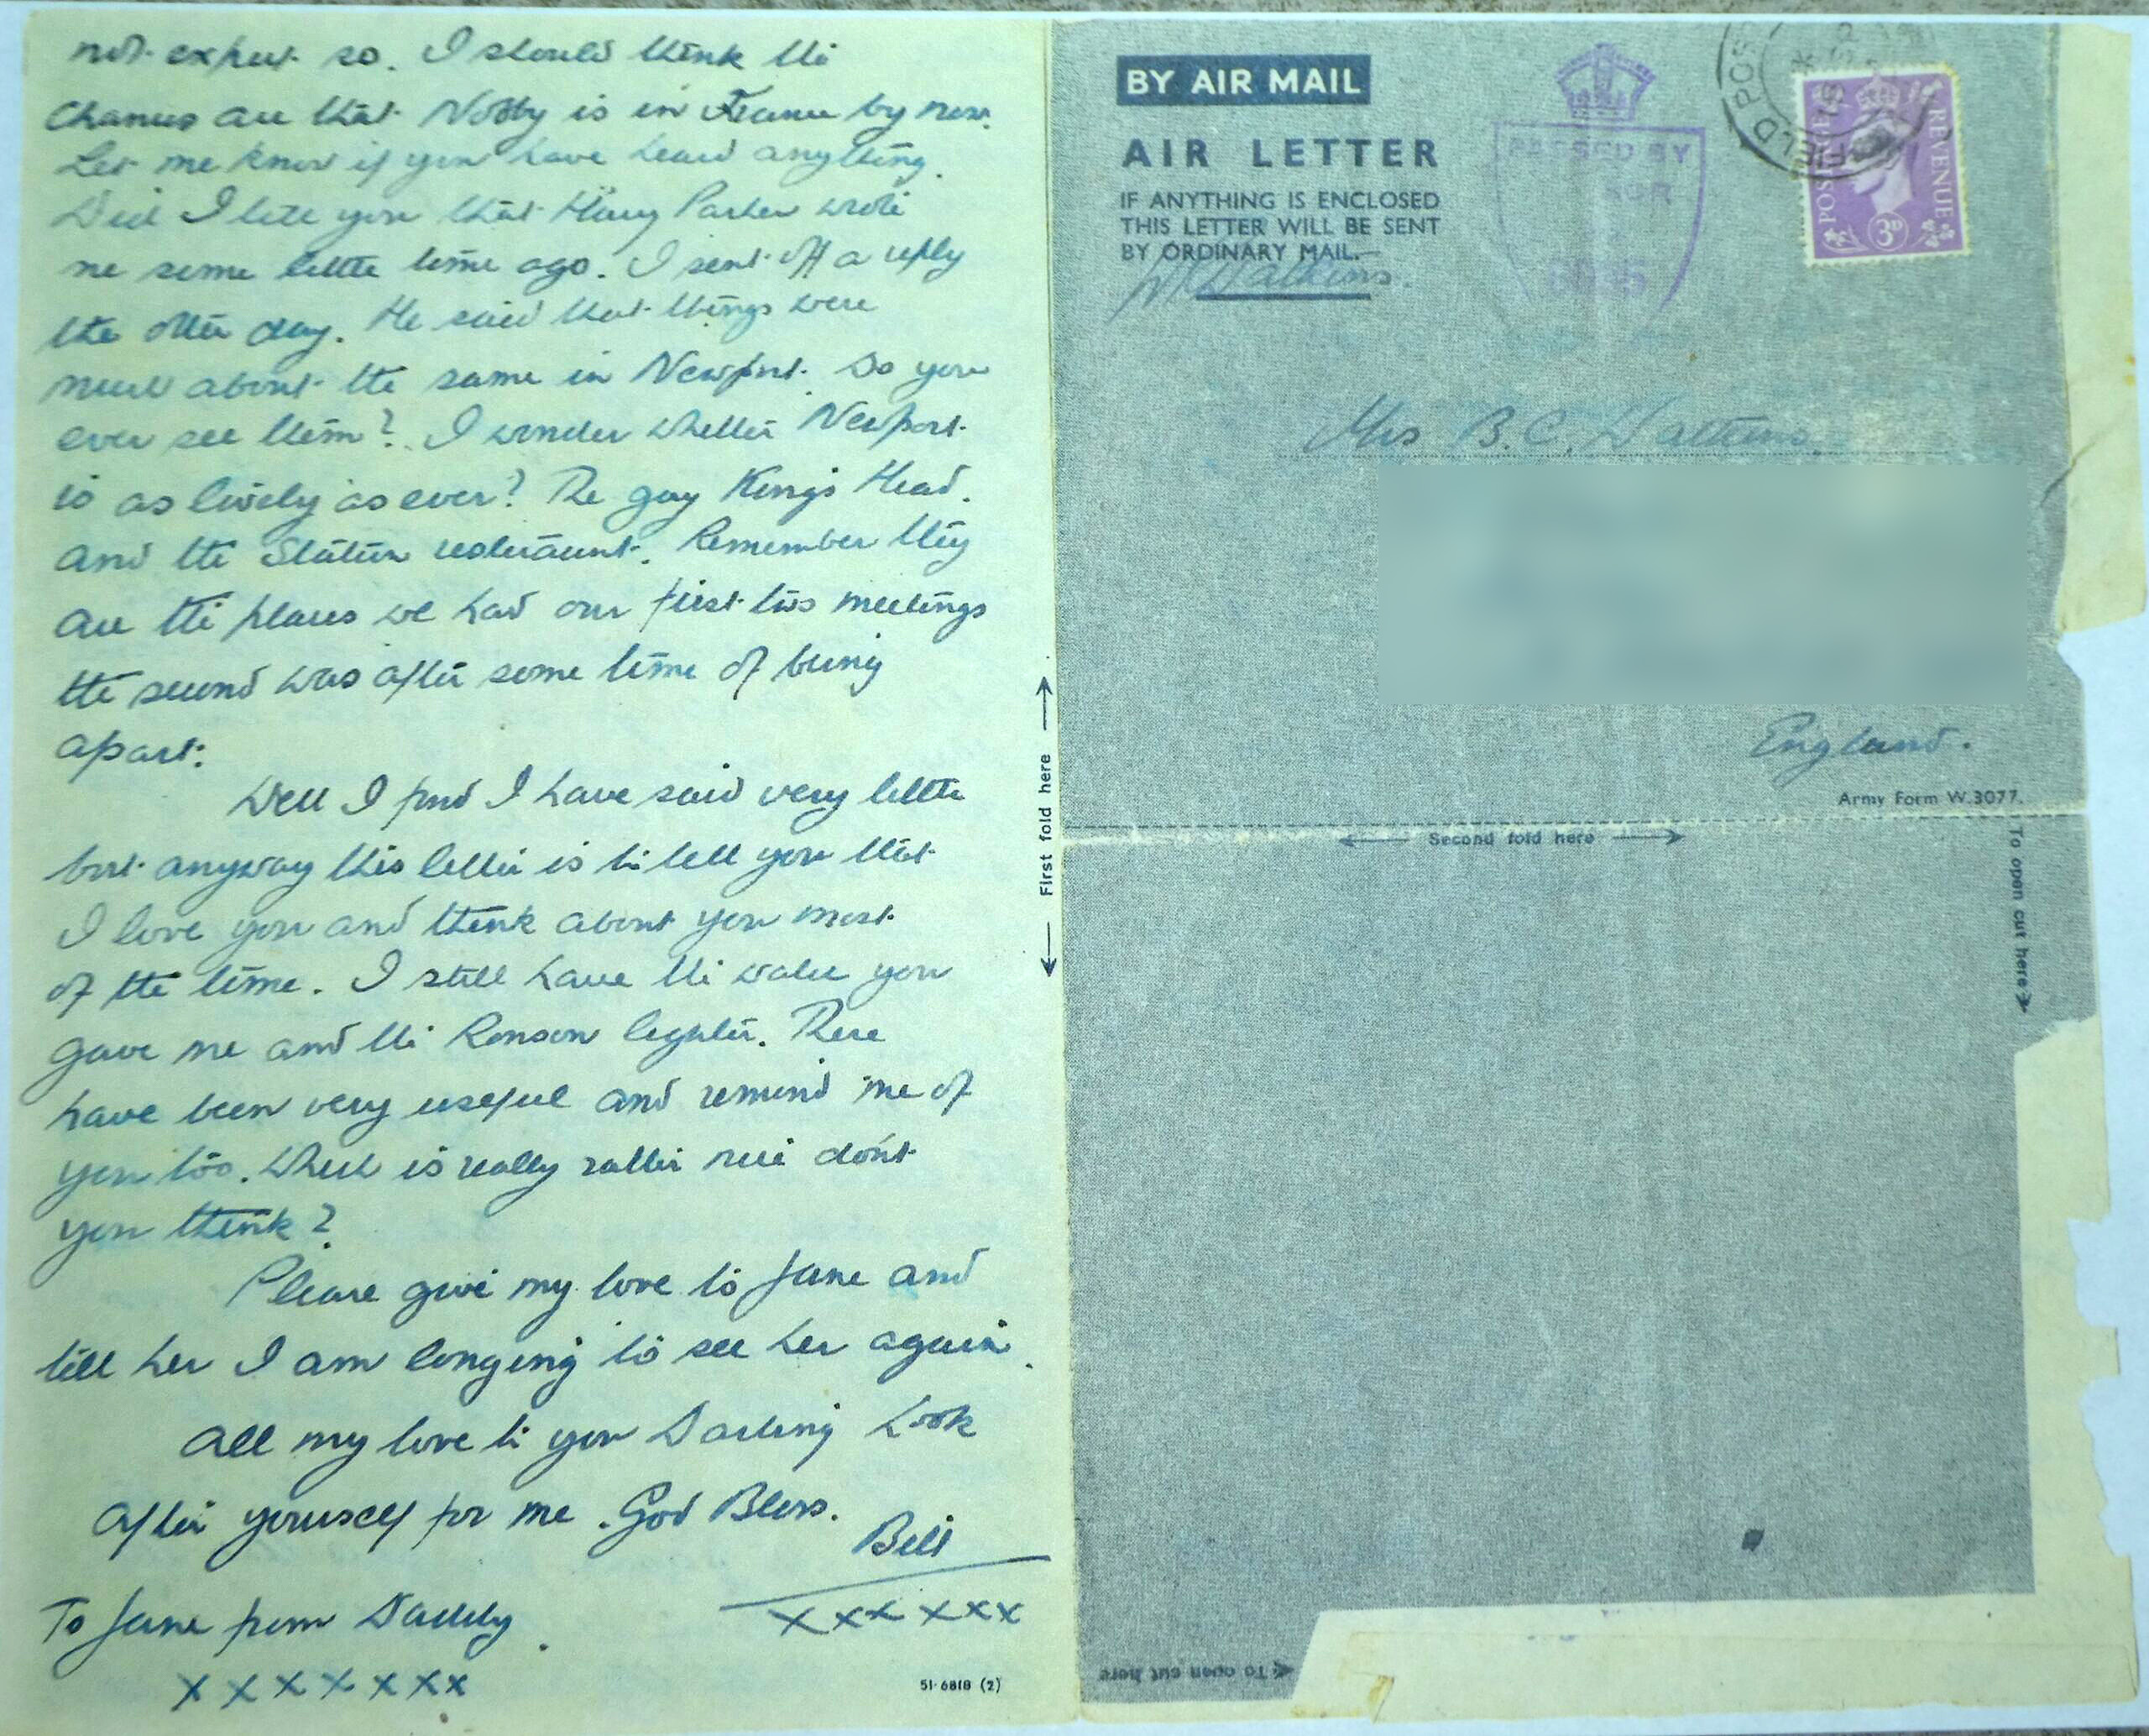 not expect so. I should think the
chances are that Nobby is in France by now.
Let me know if you have heard anything.
Did I tell you that Harry Parker wrote
me some little time ago. I sent off a reply
the other day. He said that things were
much about the same in Newport. Do you
ever see them? I wonder whether Newport
is as lively as ever? The gay Kings Head.
and the Station restraunt. Remember they
are the places we had our first two meetings
the second was after some time of being
apart.
Well I find I have said very little
but anyway this letter is to tell you that
I love you and think about you most
of the time. I still have the you
gave me and the Ronson lighter. These
have been very useful and remind me of
you too. Which is really rather nice don't
you think?
Please give my love to Jane and
tell her I am longing to see her again.
All my love to you Darling Look
after yourself for me. God Bless.
Bill
x x x x x x
To Jane from Daddy.
x x x x x x x
51-6818 (2)
First fold here
BY AIR MAIL
AIR LETTER
IF ANYTHING IS ENCLOSED
THIS LETTER WILL BE SENT
BY ORDINARY MAIL.—
Watkins.
PASSED BY
FIELD POST
POSTAGE REVENUE
3D
Mrs B.C. Watkins
England.
Army Form W.3077.
Second fold here
To open cut here
To open cut here